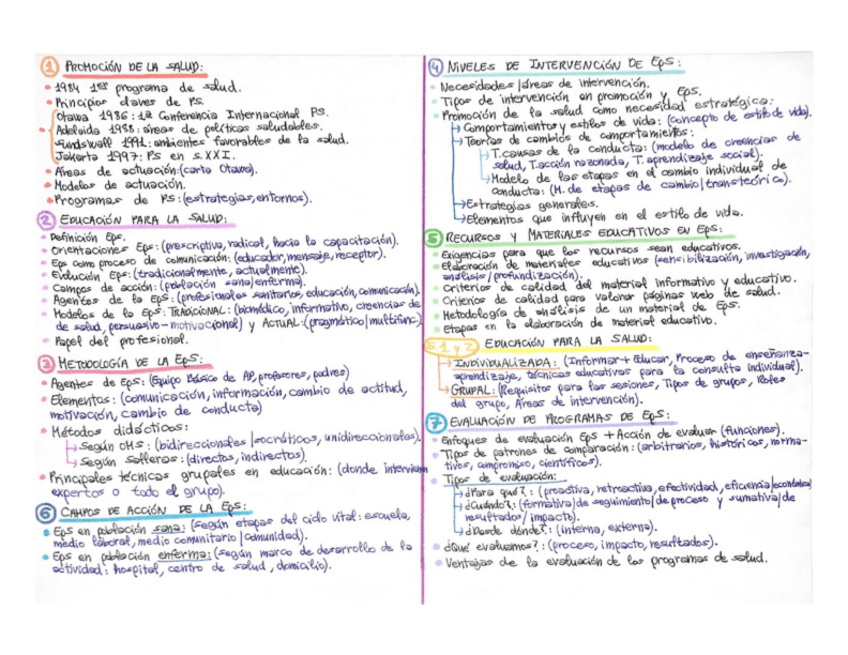 1 PROMOCIÓN DE LA SALUD:
• 1984 1er programa de salud.
• Principios claves de PS.
Otawa 1986: 1ª Conferencia Internacional PS.
• Adelaida 1988: áreas de políticas saludables.
Sundswall 1991: ambientes favorables de la salud.
Jakarta 1997: PS en S.XXI.
• Áreas de actuación: (carta Otawa).
• Modelos de actuación.
• Programas de PS: (estrategias, entornos).
2 EDUCACIÓN PARA LA SALUD:
• Definición EpS.
• Orientaciones EpS: (prescriptiva, radical, hacia la capacitación).
• EpS como proceso de comunicación: (educador, mensaje, receptor).
• Evolución EpS: (tradicionalmente, actualmente).
• Campos de acción: (población sana/enferma).
• Agentes de la EpS: (profesionales sanitarios, educación, comunicación).
• Modelos de la EpS: TRADICIONAL: (biomédico, informativo, creencias de
de salud, persuasivo-motivacional) y ACTUAL: (pragmático/multifunc).
• Papel del profesional.
3 METODOLOGÍA DE LA EpS:
• Agentes de EpS: (Equipo Básico de AP, profesores, padres)
• Elementos: (comunicación, información, cambio de actitud,
motivación, cambio de conducta)
• Métodos didácticos:
↳ Según OMS: (bidireccionales/socráticos, unidireccionales).
↳ Según Salleras: (directos, indirectos).
• Principales técnicas grupales en educación: (donde intervienen
expertos o todo el grupo).
6 CAMPOS DE ACCIÓN DE LA EpS:
• EpS en población sana: (según etapas del ciclo vital: escuela,
medio laboral, medio comunitario/comunidad).
• EpS en población enferma: (según marco de desarrollo de la
actividad: hospital, centro de salud, domicilio).
4 NIVELES DE INTERVENCIÓN DE EpS:
• Necesidades/áreas de intervención.
• Tipos de intervención en promoción y EpS.
• Promoción de la salud como necesidad estratégica:
↳ Comportamientos y estilos de vida: (concepto de estilo de vida).
↳ Teorías de cambios de comportamientos:
↳ T.causas de la conducta: (modelo de creencias de
salud, T.acción razonada, T.aprendizaje social).
↳ Modelo de las etapas en el cambio individual de
conducta: (M. de etapas de cambio/transteórico).
↳ Estrategias generales.
↳ Elementos que influyen en el estilo de vida.
5 RECURSOS Y MATERIALES EDUCATIVOS EN EpS:
• Exigencias para que los recursos sean educativos.
• Elaboración de materiales educativos (sensibilización, investigación,
análisis/profundización).
• Criterios de calidad del material informativo y educativo.
• Criterios de calidad para valorar páginas web de salud.
• Metodología de análisis de un material de EpS.
• Etapas en la elaboración de material educativo.
5.1 y 2 EDUCACIÓN PARA LA SALUD:
↳ INDIVIDUALIZADA: (Informar + Educar, Proceso de enseñanza-
aprendizaje, técnicas educativas para la consulta individual).
↳ GRUPAL: (Requisitos para las sesiones, Tipos de grupos, Roles
del grupo, Áreas de intervención).
7 EVALUACIÓN DE PROGRAMAS DE EpS:
• Enfoques de evaluación EpS + Acción de evaluar (funciones).
• Tipos de patrones de comparación: (arbitrarios, históricos, norma-
tivos, compromiso, científicos).
• Tipos de evaluación:
↳ ¿Para qué?: (proactiva, retroactiva, efectividad, eficiencia/económica)
↳ ¿Cuándo?: (formativa/de seguimiento/de proceso y sumativa/de
resultados/impacto).
↳ ¿Desde dónde?: (interna, externa).
• ¿Qué evaluamos?: (proceso, impacto, resultados).
• Ventajas de la evaluación de los programas de salud.